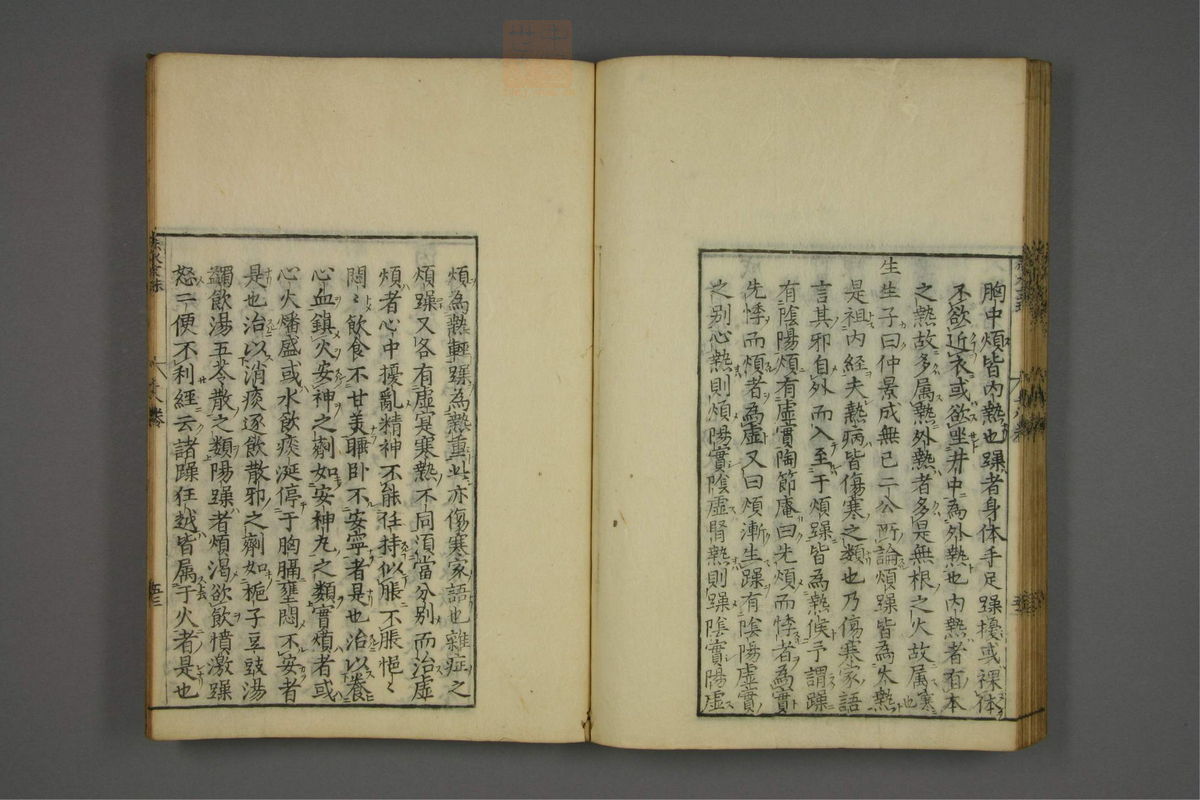 胸中煩皆内熱也躁者身体手足躁擾或裸体
不欲近衣或欲坐井中為外熱也内熱者有本
之熱故多属熱外熱者多是無根之火故属寒也
生生子曰仲景成無已二公所論煩躁皆為太熱
是祖内経夫熱病皆傷寒之類也乃傷寒家語
言其邪自外而入至于煩躁皆為熱候予謂躁
有陰陽煩有虚實陶節庵曰先煩而悸者為實
先悸而煩者為虚又曰煩漸生躁有陰陽虚實
之别心熱則煩陽實陰虚腎熱則躁陰實陽虚
煩為熱輕躁為熱重此亦傷寒家語也雜症之
煩躁又各有虚寔寒熱不同須當分别而治虚
煩者心中擾亂精神不能任持似脹不脹悒々
悶々飲食不甘美睡卧不安寧者是也治以養
心血鎮火安神之劑如安神丸之類實煩者或
心火燔盛或水飲痰涎停于胸膈壅悶不安者
是也治以消痰逐飲散邪之劑如梔子豆豉湯
蠲飲湯五苓散之類陽躁者煩渴欲飲憤激躁
怒二便不利経云諸躁狂越皆属于火者是也